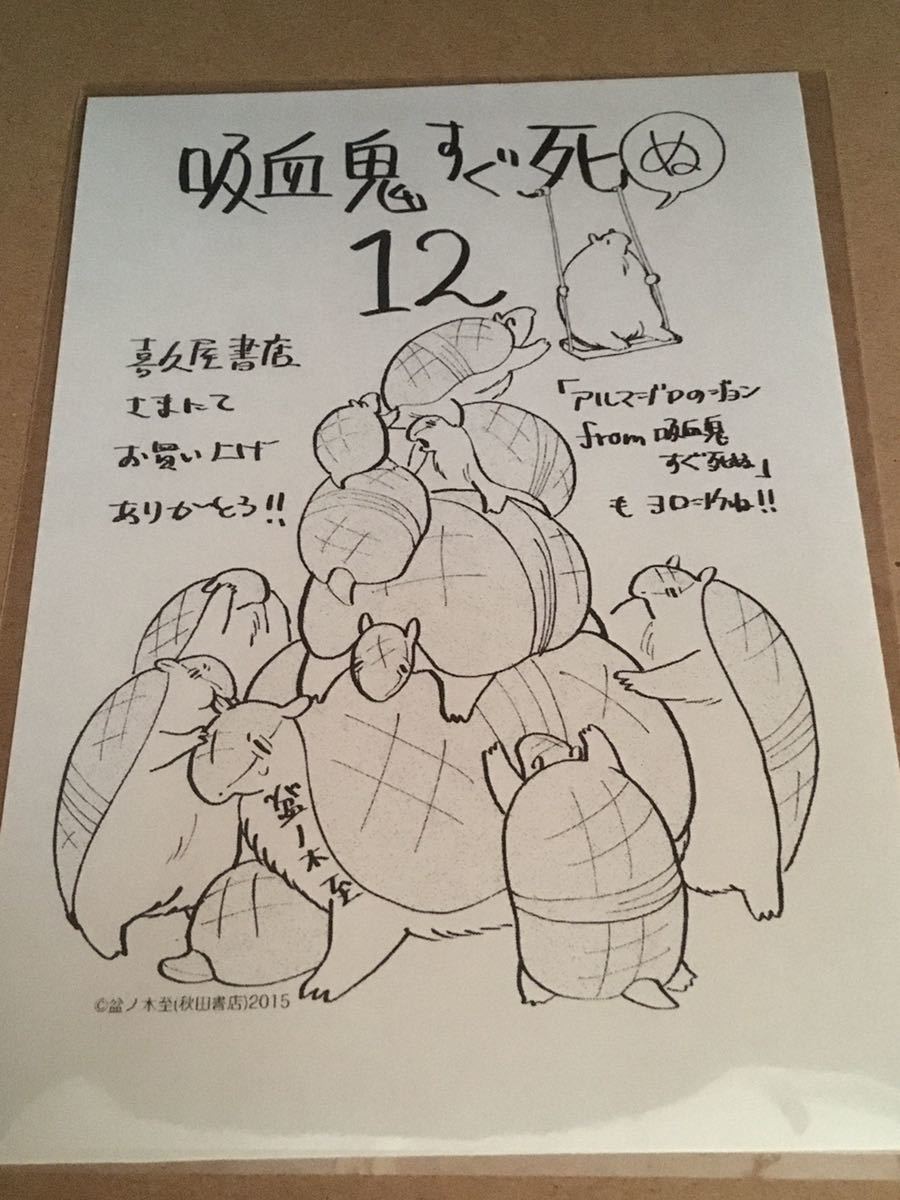 吸血鬼すぐ死ぬ
12
喜久屋書店
さまにて
お買い上げ
ありがとう!!
「アルマジロのジョン
from 吸血鬼
すぐ死ぬ」
も ヨロシクね!!
盆ノ木至
©盆ノ木至(秋田書店)2015